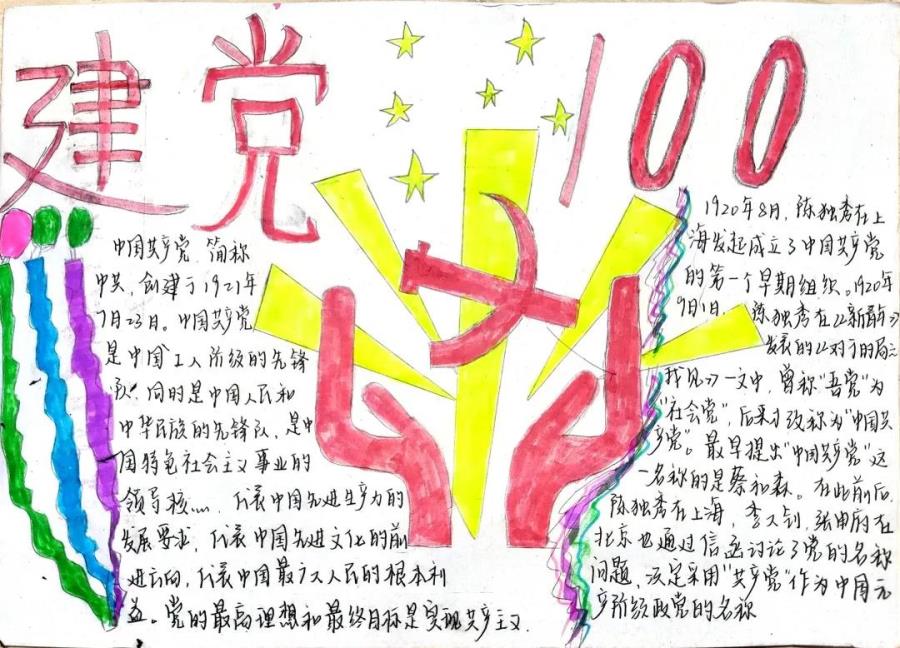 建党100
中国共产党,简称
中共,创建于1921年
7月23日。中国共产党
是中国工人阶级的先锋
队,同时是中国人民和
中华民族的先锋队,是中
国特色社会主义事业的
领导核心,代表中国先进生产力的
发展要求,代表中国先进文化的前
进方向,代表中国最广大人民的根本利
益。党的最高理想和最终目标是实现共产主义.
1920年8月,陈独秀在上
海发起成立了中国共产党
的第一个早期组织。1920年
9月1日,陈独秀在《新青年》
发表的《对于时局之
我见》一文中,曾称"吾党"为
"社会党",后来才改称为"中国共
产党"。最早提出"中国共产党"这
一名称的是蔡和森。在此前后,
陈独秀在上海,李大钊,张申府在
北京也通过信函讨论了党的名称
问题,决定采用"共产党"作为中国无
产阶级政党的名称